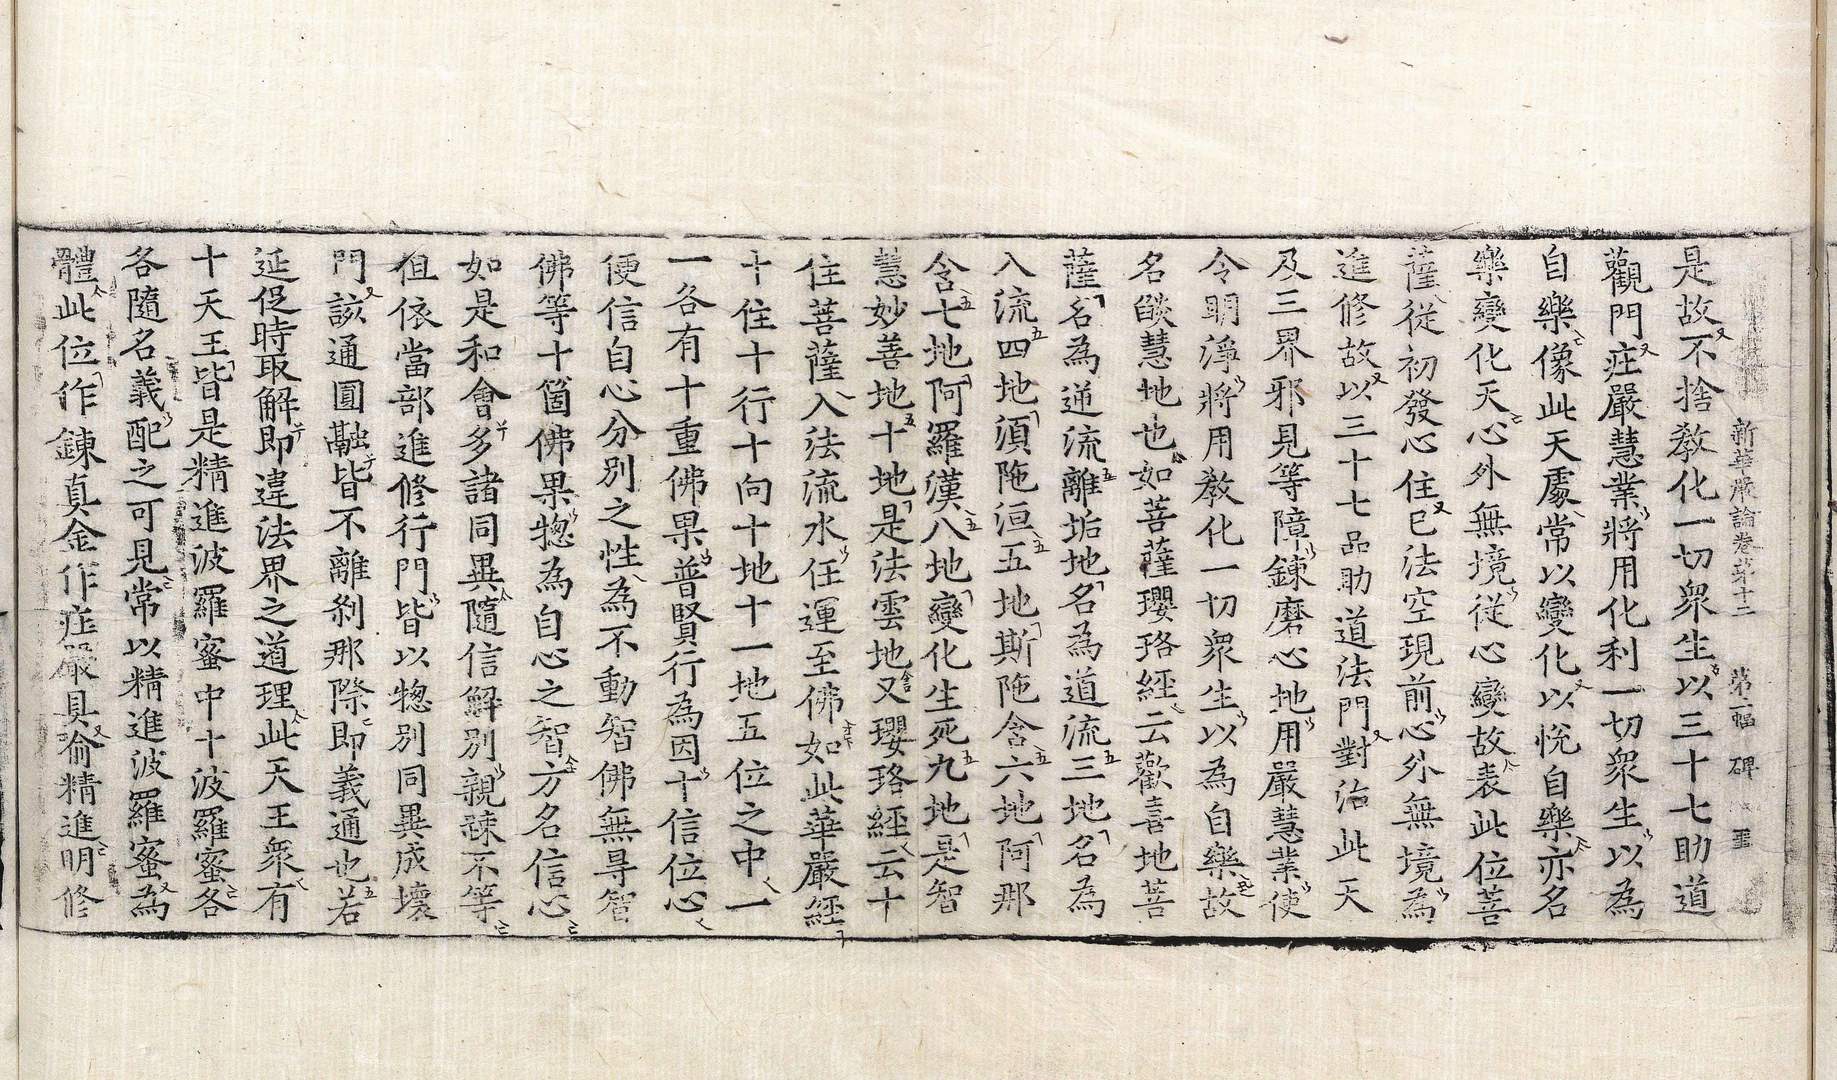 新華嚴論卷第十二　第二幅　碑
是故不捨教化一切衆生以三十七助道
觀門莊嚴慧業將用化利一切衆生以為
自樂像此天處常以變化以悅自樂亦名
樂變化天心外無境從心變故表此位菩
薩從初發心住已法空現前心外無境為
進修故以三十七品助道法門對治此天
及三界邪見等障鍊磨心地用嚴慧業使
令明淨將用教化一切衆生以為自樂故
名燄慧地也如菩薩瓔珞經云歡喜地菩
薩名為逆流離垢地名為道流三地名為
入流四地湏陁洹五地斯陁含六地阿那
含七地阿羅漢八地變化生死九地是智
慧妙善地十地是法雲地又瓔珞經云十
住菩薩入法流水任運至佛如此華嚴經
十住十行十向十地十一地五位之中一
一各有十重佛果普賢行為因十信位心
便信自心分別之性為不動智佛無㝵智
佛等十箇佛果揔為自心之智方名信心
如是和會多諸同異隨信解別親疎不等
但依當部進修行門皆以揔別同異成壞
門該通圓融皆不離刹那際即義通也若
延促時取解即違法界之道理此天王衆有
十天王皆是精進波羅蜜中十波羅蜜各
各隨名義配之可見常以精進波羅蜜為
體此位作鍊真金作莊嚴具喻精進明修